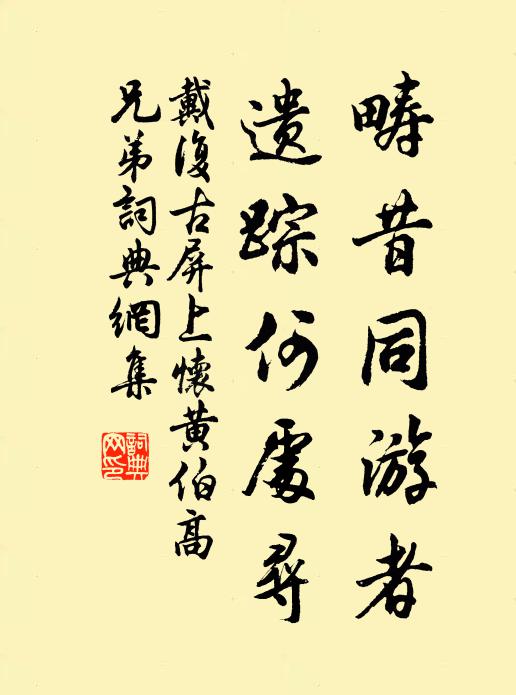 疇昔同游者
遺踪何處尋
戴復古屏上懷黄伯高
兄弟詞典網集
詞典网印